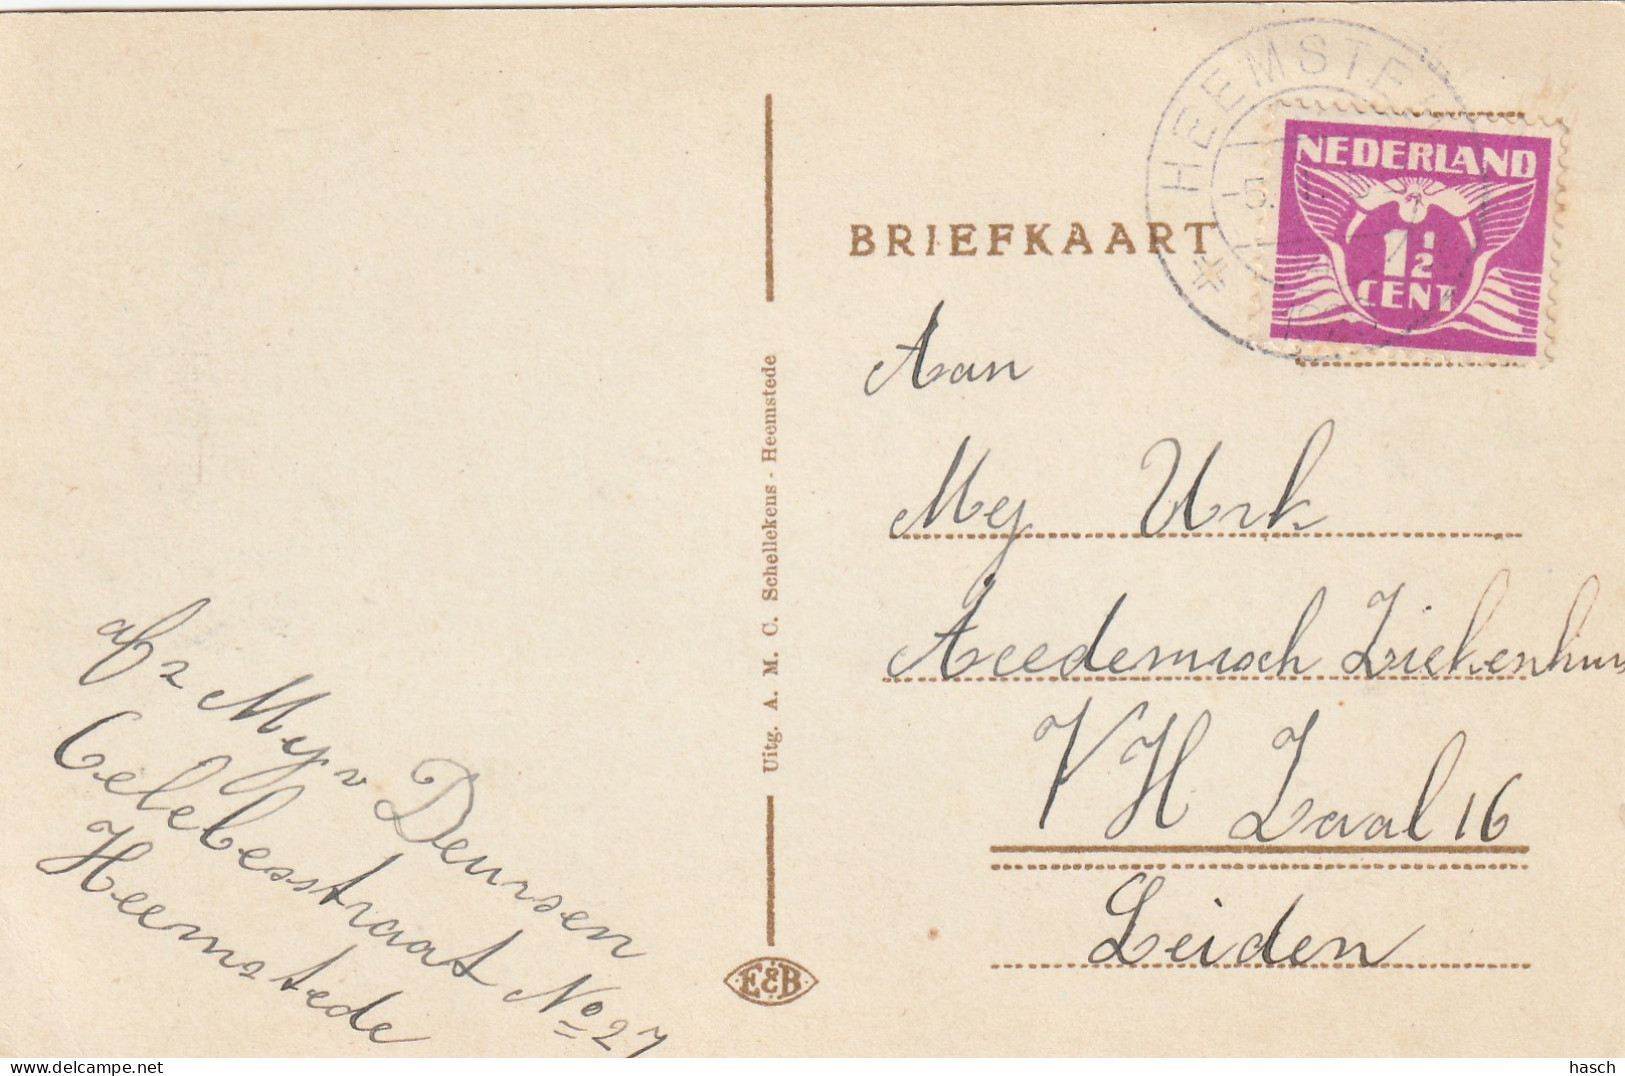 HEEMSTE
5.
NEDERLAND
1½
CENT
BRIEFKAART
Aan
Mej Urk
Acedemisch Ziekenhuis
V H Zaal 16
Leiden
Uitg. A. M. C. Schellekens - Heemstede
E&B
afz Mej v Deursen
Celebesstraat No 27
Heemstede
delcampe.net
hasch